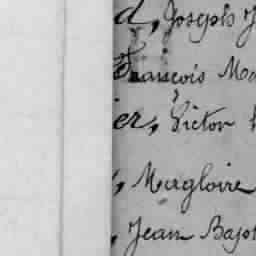 d, Joseph J
François Ma
er, Victor
, Magloire
, Jean Bapt